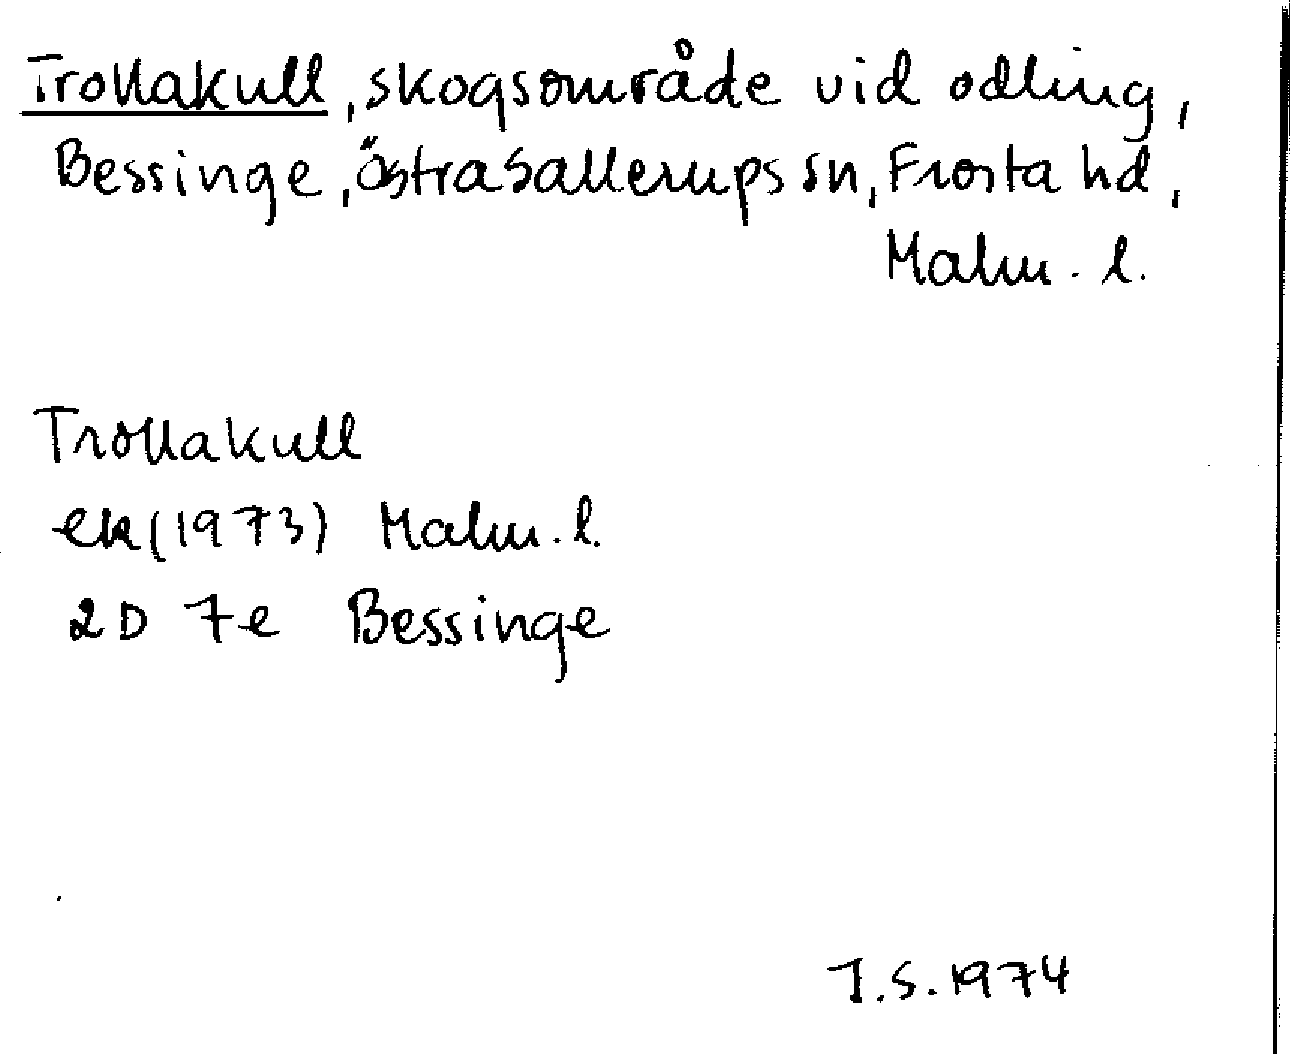 Trollakull, skogsområde vid odling,
Bessinge, Östra Sallerups sn, Frosta hd,
Malm. l.
Trollakull
ek (1973) Malm. l.
2D 7e Bessinge
I.S. 1974